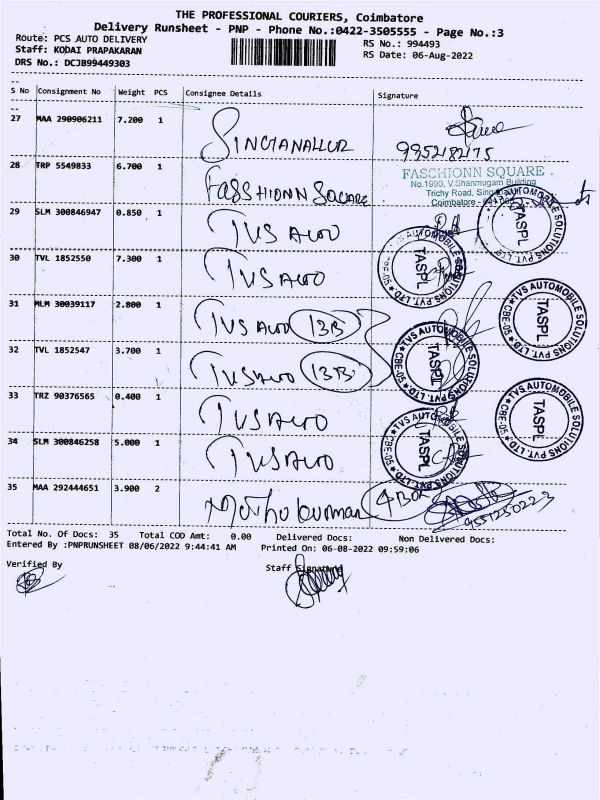 THE PROFESSIONAL COURIERS, Coimbatore
Delivery Runsheet - PNP - Phone No.:0422-3505555 - Page No.:3
Route: PCS AUTO DELIVERY
RS No.: 994493
Staff: KODAI PRAPAKARAN
RS Date: 06-Aug-2022
DRS No.: DCJB99449303
S No Consignment No Weight PCS Consignee Details Signature
27 MAA 290906211 7.200 1 SINGANALLUR
28 TRP 5549833 6.700 1 FASSHIONN SQUARE
FASCHIONN SQUARE
No.1990, V.Shanmugam Building
Trichy Road,
Coimbatore
29 SLM 300846947 0.850 1 TVS Auto
30 TVL 1852550 7.300 1 TVS Auto
31 MLM 30039117 2.800 1 TVS Auto 13B
32 TVL 1852547 3.700 1 TVS Auto 13B
33 TRZ 90376565 0.400 1 TVS Auto
34 SLM 300846258 5.000 1 TVS Auto
35 MAA 292444651 3.900 2 4 BOX
TVS AUTOMOBILE SOLUTIONS PVT. LTD
TASPL
TVS AUTOMOBILE SOLUTIONS PVT. LTD
TASPL
TVS AUTOMOBILE SOLUTIONS PVT. LTD CBE-05
TASPL
TVS AUTOMOBILE SOLUTIONS PVT. LTD CBE-05
TASPL
TVS AUTOMOBILE SOLUTIONS PVT. LTD CBE-05
TASPL
TVS AUTOMOBILE SOLUTIONS PVT. LTD CBE-05
TASPL
Total No. Of Docs: 35 Total COD Amt: 0.00 Delivered Docs: Non Delivered Docs:
Entered By :PNPRUNSHEET 08/06/2022 9:44:41 AM Printed On: 06-08-2022 09:59:06
Verified By
Staff Signature